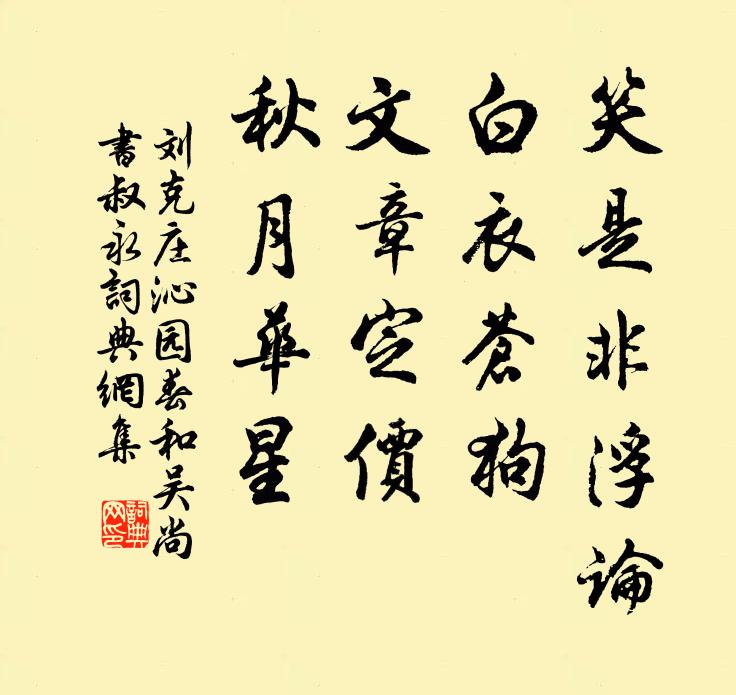 笑是非浮論
白衣蒼狗
文章定價
秋月華星
刘克庄沁园春和吴尚
書叔永詞典網集
詞典
网印